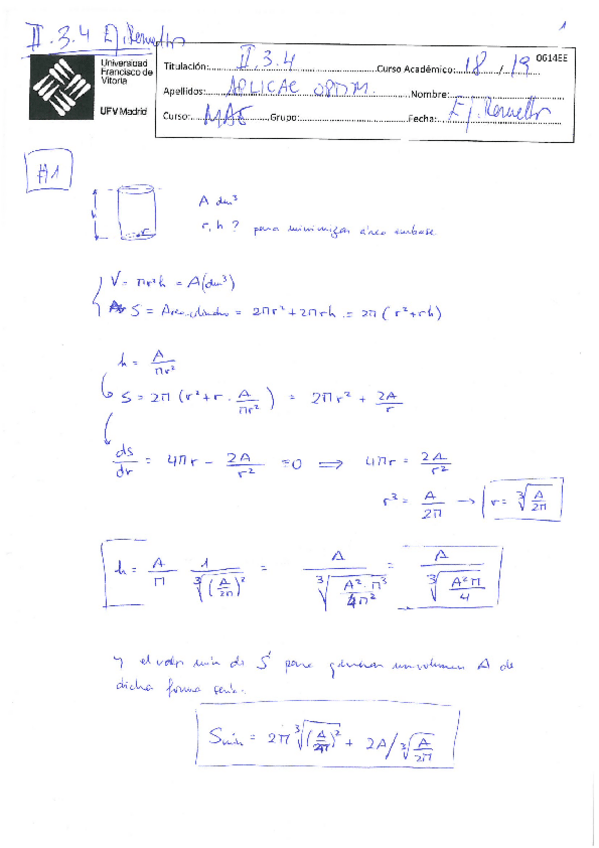 1
II.3.4 Ej. Resueltos
Universidad
Francisco de
Vitoria
UFV Madrid
Titulación: II.3.4 Curso Académico: 18 / 19 0614EE
Apellidos: APLICAC OPTIM. Nombre:
Curso: MAE Grupo: Fecha: Ej. Resueltos
#1
h
r
A dm³
r, h ? para minimizar área envase
V = πr²h = A(dm³)
S = Area cilindro = 2πr² + 2πrh = 2π (r² + rh)
h = A/πr²
S = 2π (r² + r · A/πr²) = 2πr² + 2A/r
ds/dr = 4πr - 2A/r² = 0 ⟹ 4πr = 2A/r²
r³ = A/2π → r = ∛(A/2π)
h = A/π 1/∛(A/2π)² = A/∛(A²·π³/4π²) = A/∛(A²π/4)
y el valor min de S para generar un volumen A de
dicha forma sería:
Smin = 2π ∛(A/2π)² + 2A/∛(A/2π)